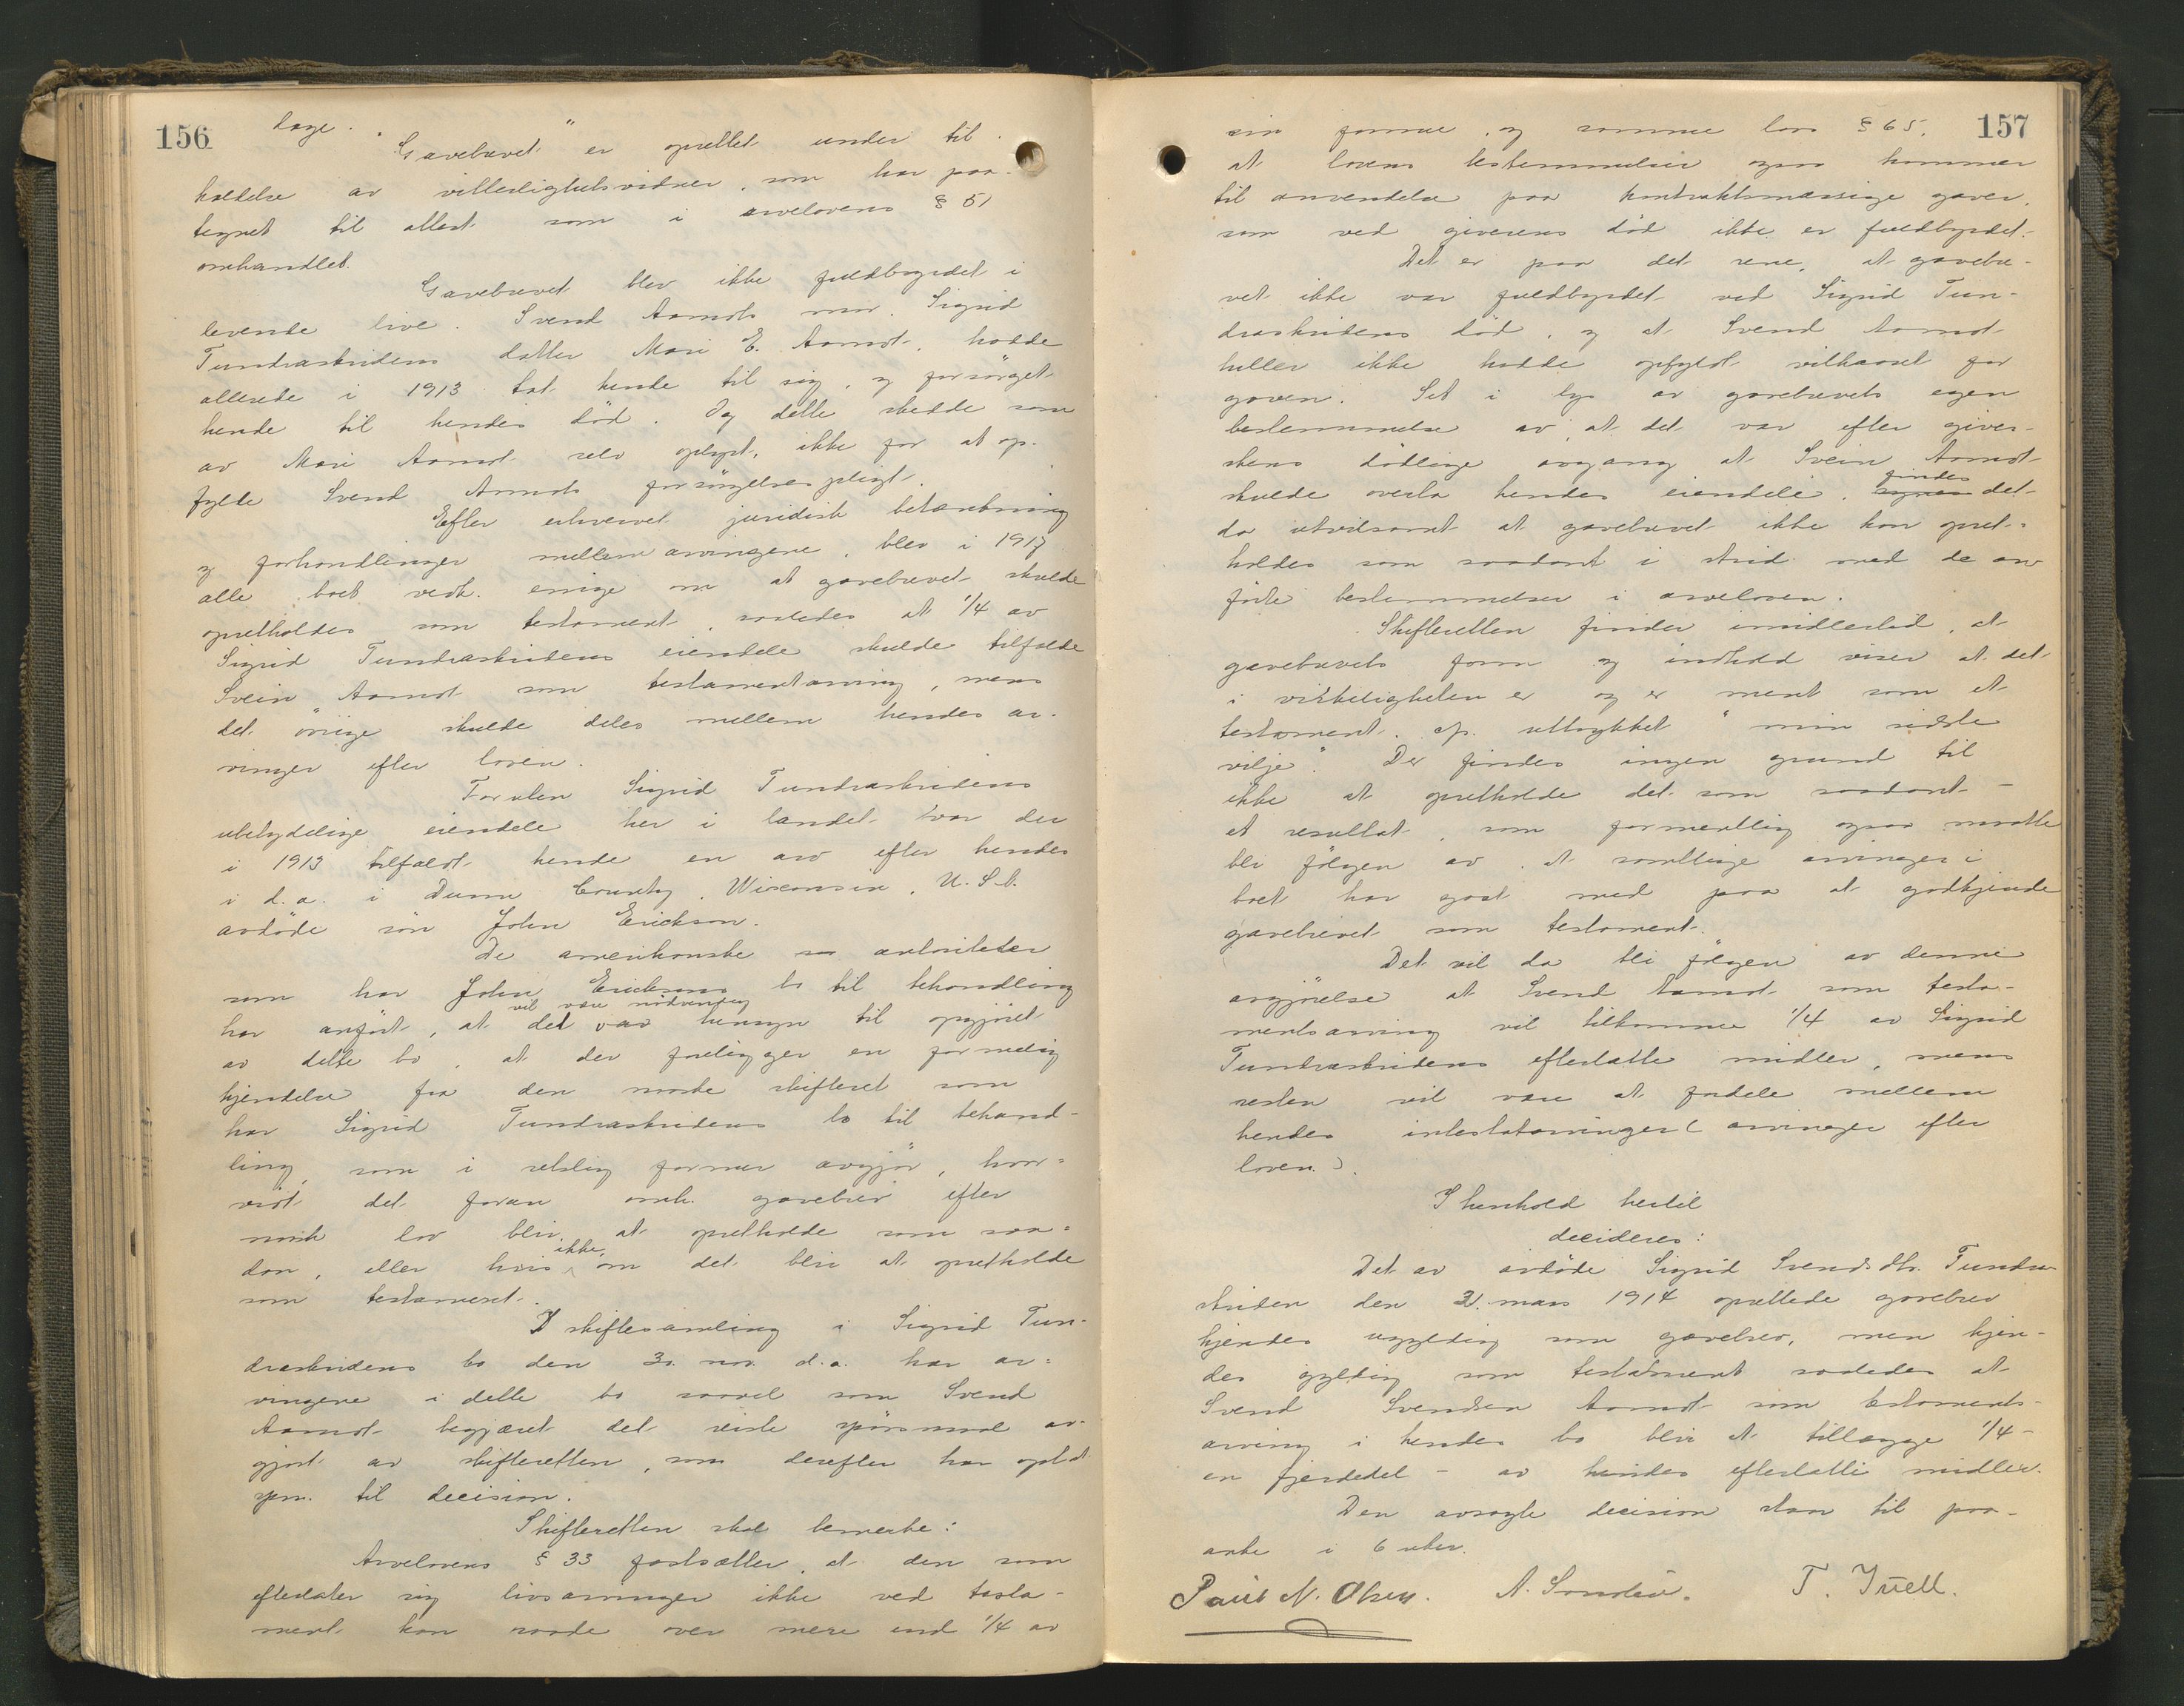 156
dage.
"Gavebrevet" er oprettet under til-
kaldelse av vitterlighetsvidner, som har paa-
tegnet til attest som i arvelovens § 51
omhandlet.
Gavebrevet blev ikke fuldbyrdet i
levende live. Svend Aamots mor, Sigrid
Tundraskridens datter Mari E. Aamot, hadde
allerede i 1913 tat hende til sig, og forsörget
hende til hendes död. Og dette skedde som
av Mari Aamot selv oplyst, ikke for at op-
fylde Svend Aamots forsörgelsespligt.
Efter erhvervet juridisk betænkning
og forhandlinger mellem arvingene, blev i 1917
alle boet vedk. enige om at gavebrevet skulde
opretholdes som testament, saaledes at 1/4 av
Sigrid Tundraskridens eiendele skulde tilfalde
Svein Aamot som testamentarving, mens
det övrige skulde deles mellem hendes ar-
vinger efter loven.
Foruten Sigrid Tundraskridens
ubetydelige eiendele her i landet var der
i 1913 tilfaldt hende en arv efter hendes
i d.a. i Dunn County, Wisconsin, U.S.A.
avdöde sön John Erickson.
De amerikanske autoriteter
som har John Ericksons bo til behandling
vil være nödvendig
har anfört, at det av hensyn til opgjöret
av dette bo, at der foreligger en formelig
kjendelse fra den norske skifteret som
har Sigrid Tundraskridens bo til behand-
ling, som i retslig former avgjör, hvor-
vidt det foran omh. gavebrev efter
norsk lov blir at opretholde som saa-
ikke,
dan, eller hvis om det blir at opretholde
som testament.
I skiftesamling i Sigrid Tun-
draskridens bo den 30. nov. d.a. har ar-
vingene i dette bo saavel som Svend
Aamot begjæret det reiste spörsmaal av-
gjort av skifteretten, som derefter har optat
spm. til decision.
Skifteretten skal bemerke:
Arvelovens § 33 fastsætter, at den som
efterlater sig livsarvinger ikke ved testa-
ment kan raade over mere end 1/4 av
157
sin formue, og samme lovs § 65,
at lovens bestemmelser ogsaa kommer
til anvendelse paa kontraktsmæssige gaver,
som ved giverens död ikke er fuldbyrdet.
Det er paa det rene, at gavebre-
vet ikke var fuldbyrdet ved Sigrid Tun-
draskridens död, og at Svend Aamot
heller ikke hadde opfyldt vilkaaret for
gaven. Set i lys av gavebrevets egen
bestemmelse av, at det var efter giver-
skens dödelige avgang at Svein Aamot
findes
skulde overta hendes eiendele, synes det
da utvilsomt at gavebrevet ikke kan opret-
holdes som saadant i strid med de an-
förte bestemmelser i arveloven.
Skifteretten finder imidlertid, at
gavebrevets form og indhold viser at det
i virkeligheten er og er ment som et
testament, cfr. uttrykket "min sidste
vilje". Der findes ingen grund til
ikke at opretholde det som saadant –
et resultat, som formentlig ogsaa maatte
bli fölgen av, at samtlige arvinger i
boet har gaat med paa at godkjende
gavebrevet som testament.
Det vil da bli fölgen av denne
avgjörelse at Svend Aamot som testa-
mentsarving vil tilkomme 1/4 av Sigrid
Tundraskridens efterlatte midler, mens
resten vil være at fordele mellem
hendes intestatarvinger (arvinger efter
loven).
I henhold hertil
decideres:
Det av avdöde Sigrid Svendsdtr. Tundra-
skriden den 21. mars 1914 oprettede gavebrev
kjendes ugyldig som gavebrev, men kjen-
des gyldig som testament saaledes at
Svend Svendsen Aamot som testaments-
arving i hendes bo blir at tillægge 1/4 –
en fjerdedel – av hendes efterlatte midler.
Den avsagte decision staar til paa-
anke i 6 uker.
Paul N. Olsen. A. T. Juell.